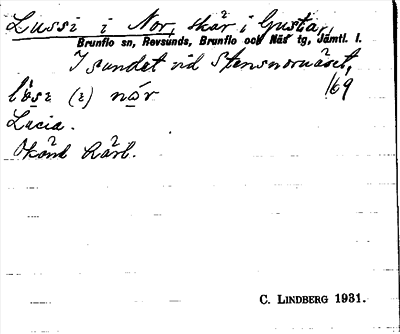 Lussi i Nor, skär i Gusta,
Brunflo sn, Revsunds, Brunflo och Näs tg, Jämtl. l.
I sundet vid Stensnornäset,
169
(ɛ) nor
Lucia.
Okänd härl.
C. LINDBERG 1931.